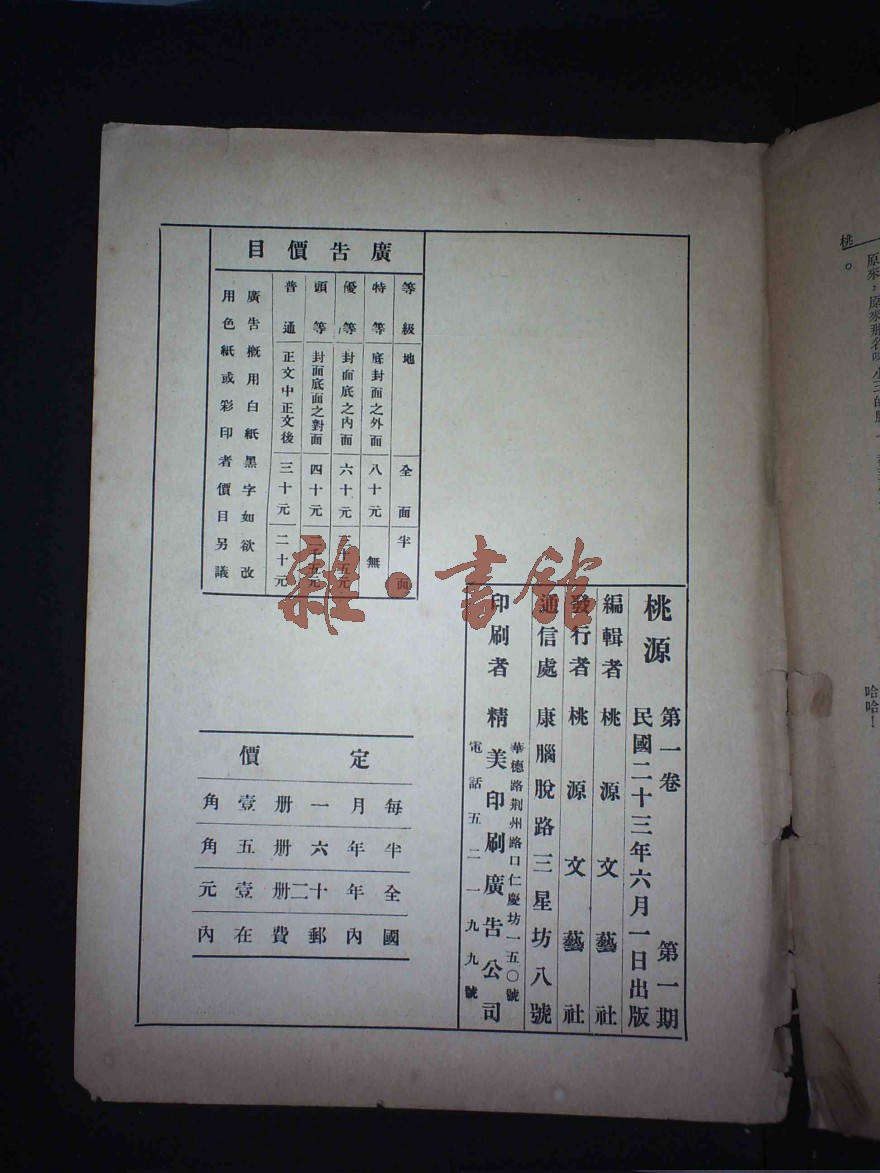 桃
。
原來，原來那名
哈哈！
桃源
第一卷 第一期
民國二十三年六月一日出版
編輯者 桃源文藝社
發行者 桃源文藝社
通信處 康腦脫路三星坊八號
印刷者 精美印刷廣告公司
華德路荆州路口仁慶坊一五〇號
電話五二一九九號
廣告價目
等級 地 全面 半面
特等 底封面之外面 八十元 無
優等 封面底之內面 六十元 十五元
頭等 封面底面之對面 四十元 五元
普通 正文中正文後 三十元 二十元
廣告槪用白紙黑字如欲改
用色紙或彩印者價目另議
定價
每月一册壹角
半年六册五角
全年十二册壹元
國內郵費在內
雜·書館